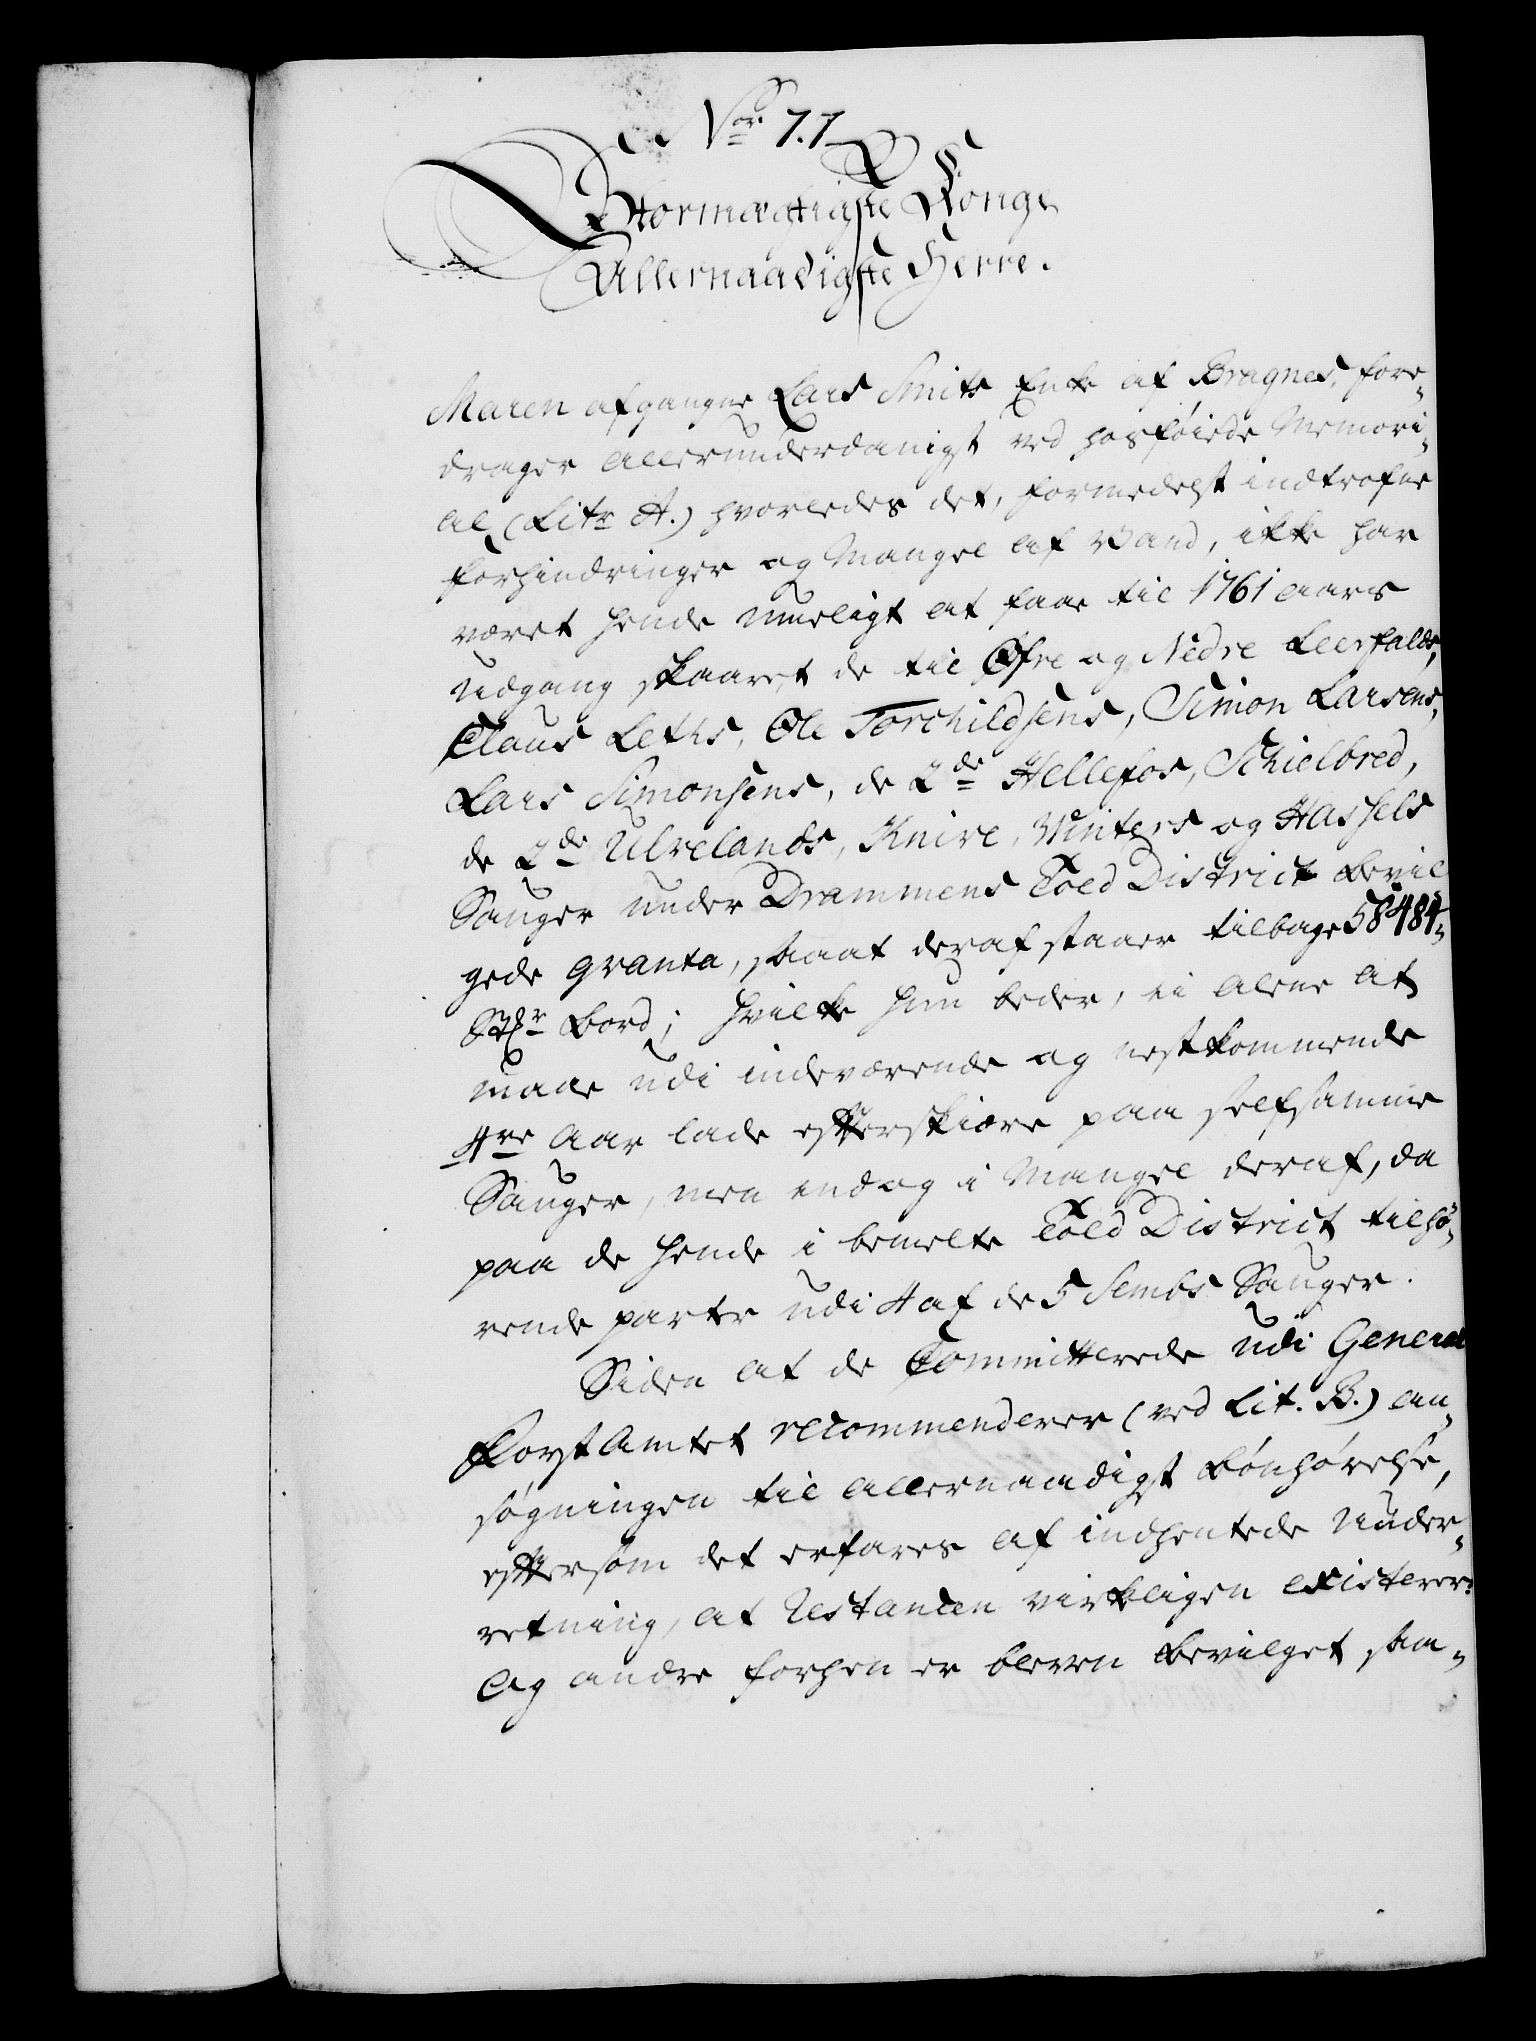 Nor. 77
Stormægtigste Konge
Allernaadigste Herre.
Maren afgangne Lars Smits Enke af Bragnes, fore-
drager allerunderdanigst ved hosføiede Memori-
al (Litr A.) hvorledes det, formedelst indtrofne
forhindringer og Mangel af Vand, ikke har
været hende mueligt at faae til 1761 aars
Udgang skaaret de til Øfre og Nedre Leerfalds,
Claus Leths, Ole Torchildsens, Simon Larsens,
Lars Simonsens, de 2de Hellefos, Schielbred,
de 2de Ulvelands, Knive, Vinters og Hassels
Sauger under Drammens Told District bevil
gede qvanta, saaat deraf staaer tilbage 58484
Stkr Bord; hvilke hun beder, ei alene at
maae udi indeværende og nestkommende
4re Aar lade efterskiære paa selfsamme
Sauger, men endog i Mangel deraf, da
paa de hende i bemelte Told District tilhø-
rende parter udi 4 af de 5 Sembs Sauger.
Siden at de Committerede udi General
Forst Amtet recommenderer (ved Lit. B.) an-
søgningen til allernaadigst Bønhørelse,
eftersom det erfares af indhentede Under-
retning, at Restancen virkeligen existerer:
Og andre forhen er bleven bevilget saa-